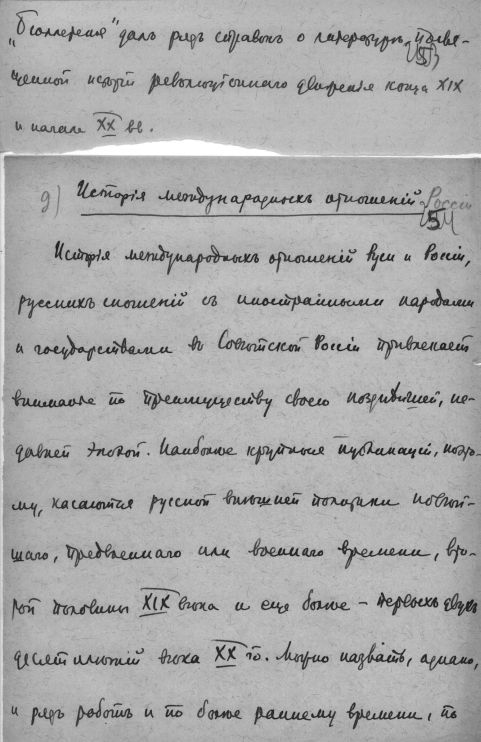 „Бюллетень" далъ рядъ справокъ о литературѣ, посвя-
щенной исторіи революціоннаго движенія конца XIX
и начала XX вв.
д) Исторія международныхъ отношеній Россіи
5
Исторія международныхъ отношеній Руси и Россіи,
русскихъ сношеній съ иностранными народами
и государствами въ Совѣтской Россіи привлекаетъ
вниманіе по преимуществу своею позднѣйшей, не-
давней эпохой. Наиболѣе крупныя публикаціи, поэто-
му, касаются русской внѣшней политики новѣй-
шаго, предвоеннаго или военнаго времени, вто-
рой половины XIX вѣка и еще болѣе – первыхъ двухъ
десятилѣтій вѣка XX го. Можно назвать, однако,
и рядъ работъ и по болѣе раннему времени, по